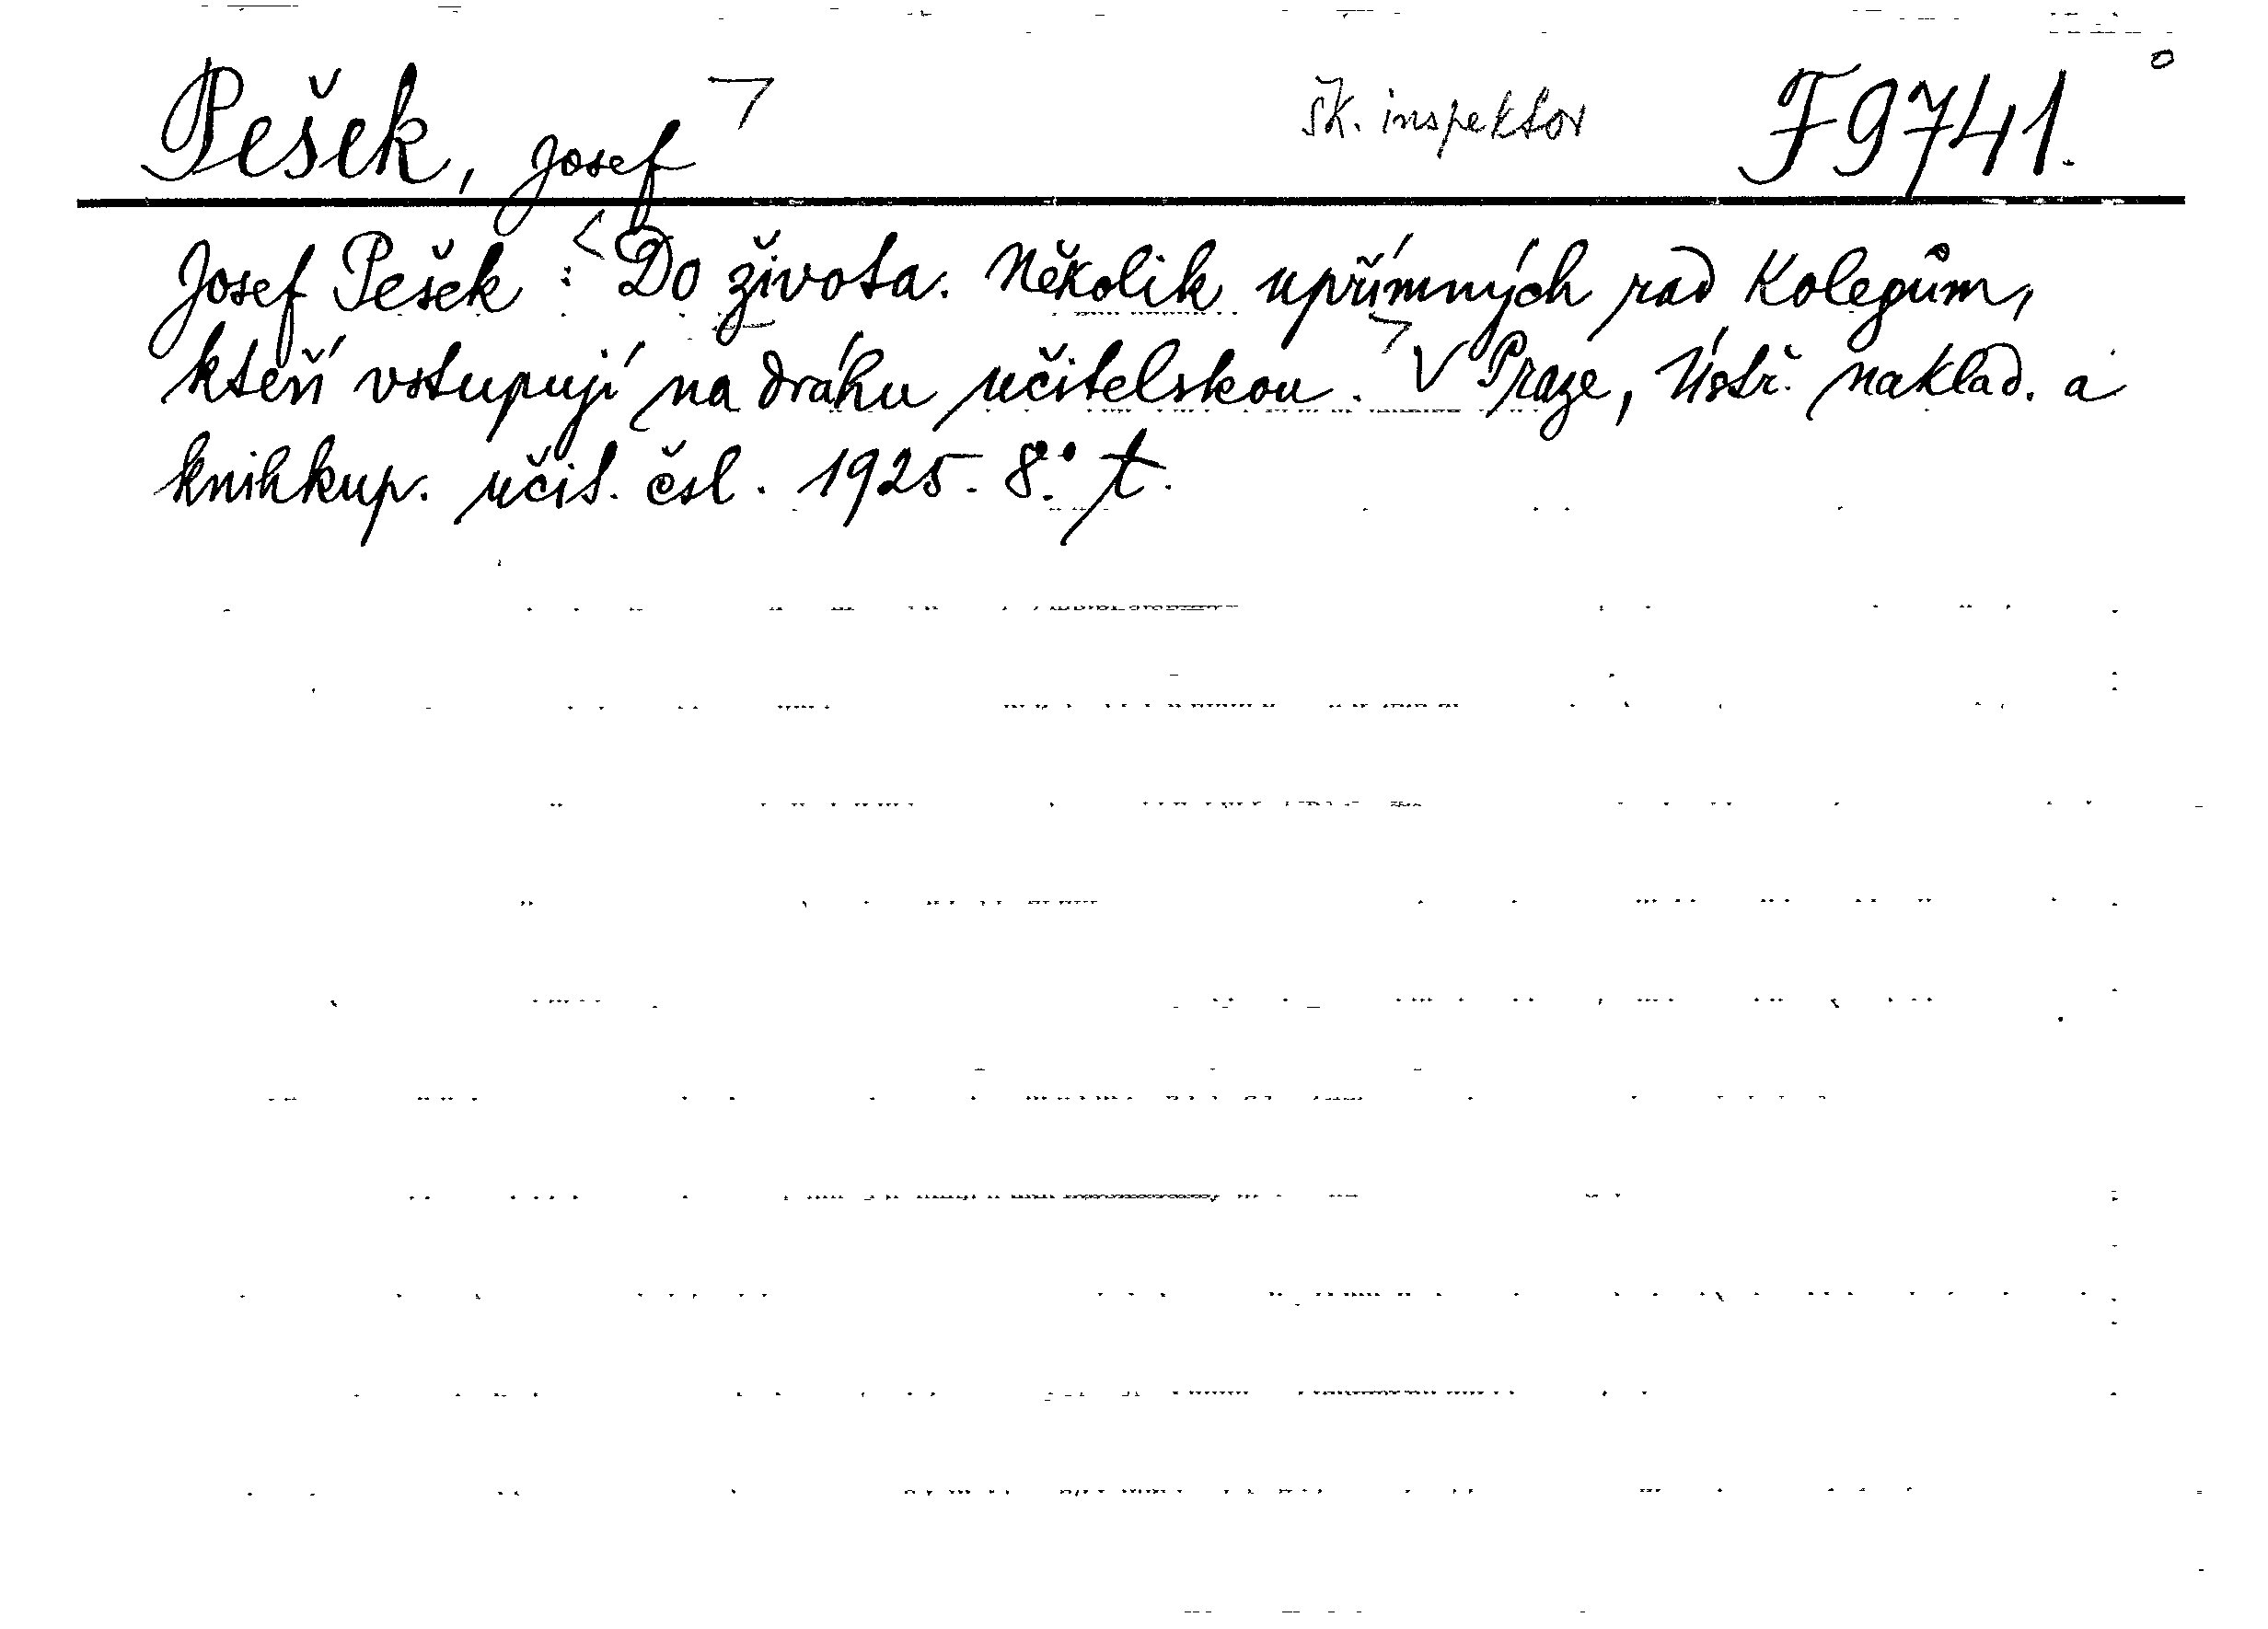 Pešek, Josef šk. inspektor F 9741.
Josef Pešek : Do života. Několik upřímných rad kolegům,
kteří vstupují na dráhu učitelskou. V Praze, Ústř. naklad. a
knihkup. učit. čsl. 1925. 8.° t.